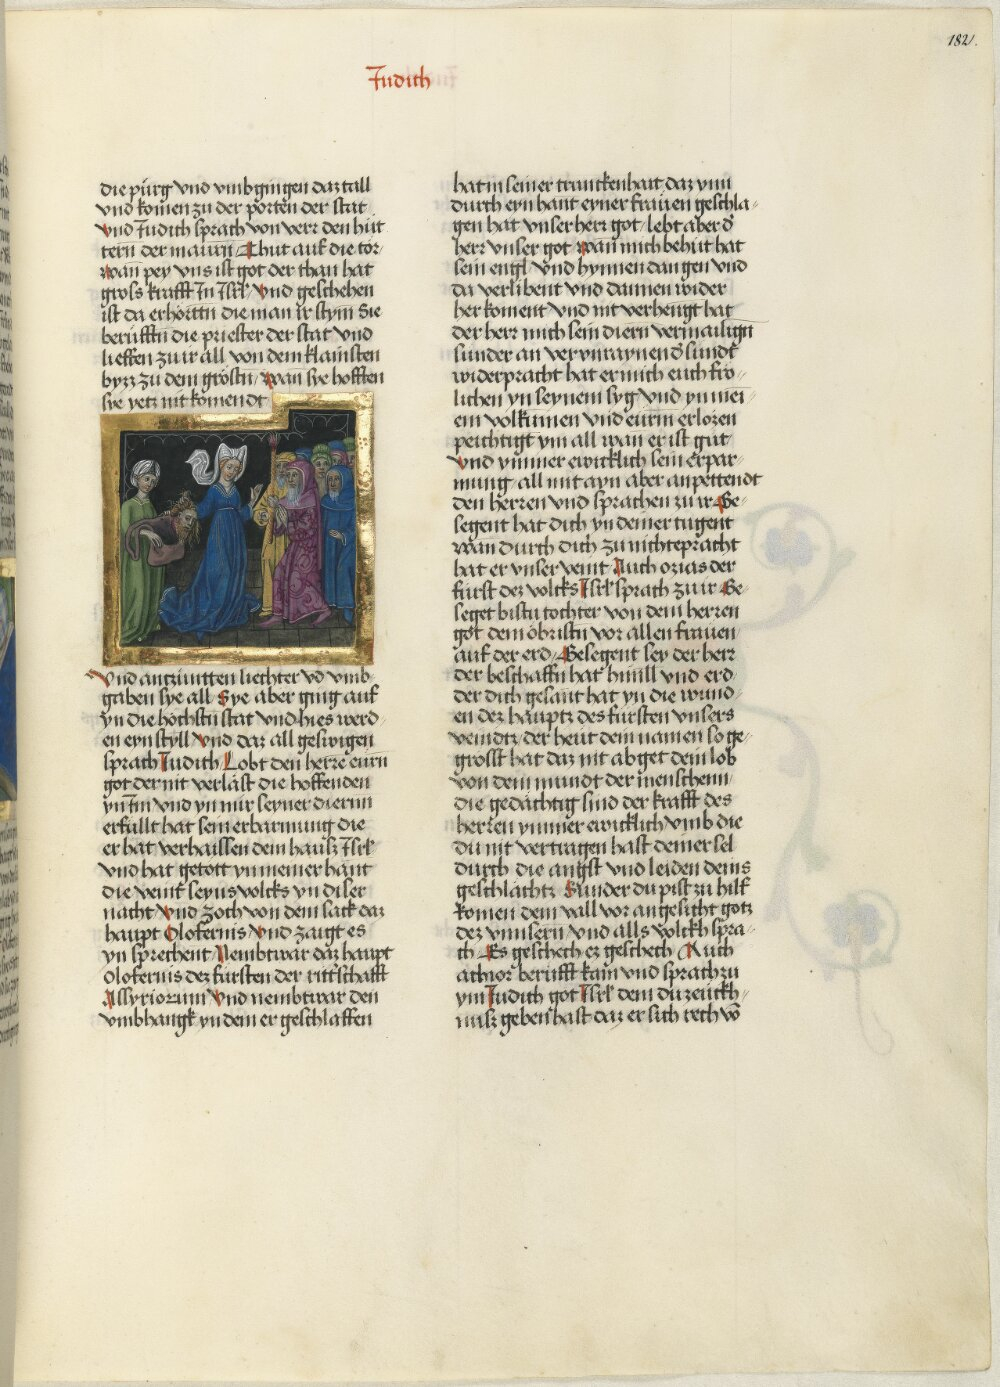 182.
Judith
die pürg vnd vmbgingen daz tall
vnd komen zu der porten der stat
vnd Judith sprach von verr den hüt
tern der maurn Thut auf die tor
wan pey vns ist got der than hat
gross krafft Jn Jsrl vnd geschehen
ist da erhörttn die man ir stym Sie
berüfftn die priester der stat vnd
lieffen zu ir all von dem klainsten
bysz zu dem gröstn wan sye hofften
sye yetz nit komendt
Vnd antzüntten liechter vd vmb
gaben sye all Sye aber ging auf
yn die höchstn stat vnd hies werd
en eyn styll vnd daz all geswigen
sprach Judith Lobt den herre eurn
got der nit verläst die hoffenden
yn Jm vnd yn mir seyner diernn
erfullt hat sein erbarmung die
er hat verhaissen dem hausz Jsrl
vnd hat getött yn meiner hant
die veint seyns volcks yn diser
nacht vnd zoch von dem sack daz
haupt Olofernis vnd zaigt es
yn sprechent Nembtwar daz haupt
Olofernis dez fürsten der rittschafft
Assyriorum vnd nembtwar den
vmbhangk yn dem er geschlaffen
hat in seiner trunckenhait daz ynn
durch eyn hant eyner frauen geschla
gen hat vnser herr got lebt aber d
herr vnser got wan mich behüt hat
sein engl vnd hynnen dangen vnd
da verlibent vnd dannen wider
her koment vnd nit verhengt hat
der herr mich sein diern vermailign
sunder an verunraynend sündt
widerpracht hat er mich euch frö
lichen yn seynem syg vnd yn mei
em volkumen vnd eurm erlozen
peichtigt ym all wan er ist gut
vnd ymmer ewicklich sein erpar
mung all mit ayn aber anpettendt
den herren vnd sprachen zu ir Ge
segent hat dich yn deiner tugent
wan durch dich zu nichtepracht
hat er vnser veint Auch ozias der
fürst dez volcks Jsrl sprach zu ir Ge
seget bistu tochter von dem herren
got dem öbristn vor allen frauen
auf der erd Gesegent sey der herr
der beschaffn hat himll vnd erd
der dich gesant hat yn die wund
en dez hauptz des fürsten vnsers
veindtz der heut dein namen so ge
grosst hat daz nit abget dein lob
von dem mundt der menschenn
die gedächtig sind der krafft des
herren ymmer ewicklich vmb die
du nit vertragen hast deiner sel
durch die angst vnd leiden deins
geschlächtz Sunder du pist zu hilf
komen dem vall vor angesicht gotz
dez vnnsern vnd alls volckh spra
ch Es geschech ez geschech Auch
achior berüfft kam vnd sprach zu
ym Judith got Jsrl dem du zeückh
nusz geben hast daz er sich rech vo